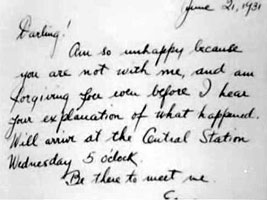 June 21, 1931
Darling!
Am so unhappy because
you are not with me, and am
forgiving you even before I hear
your explanation of what happened.
Will arrive at the Central Station
Wednesday 5 o'clock.
Be there to meet me